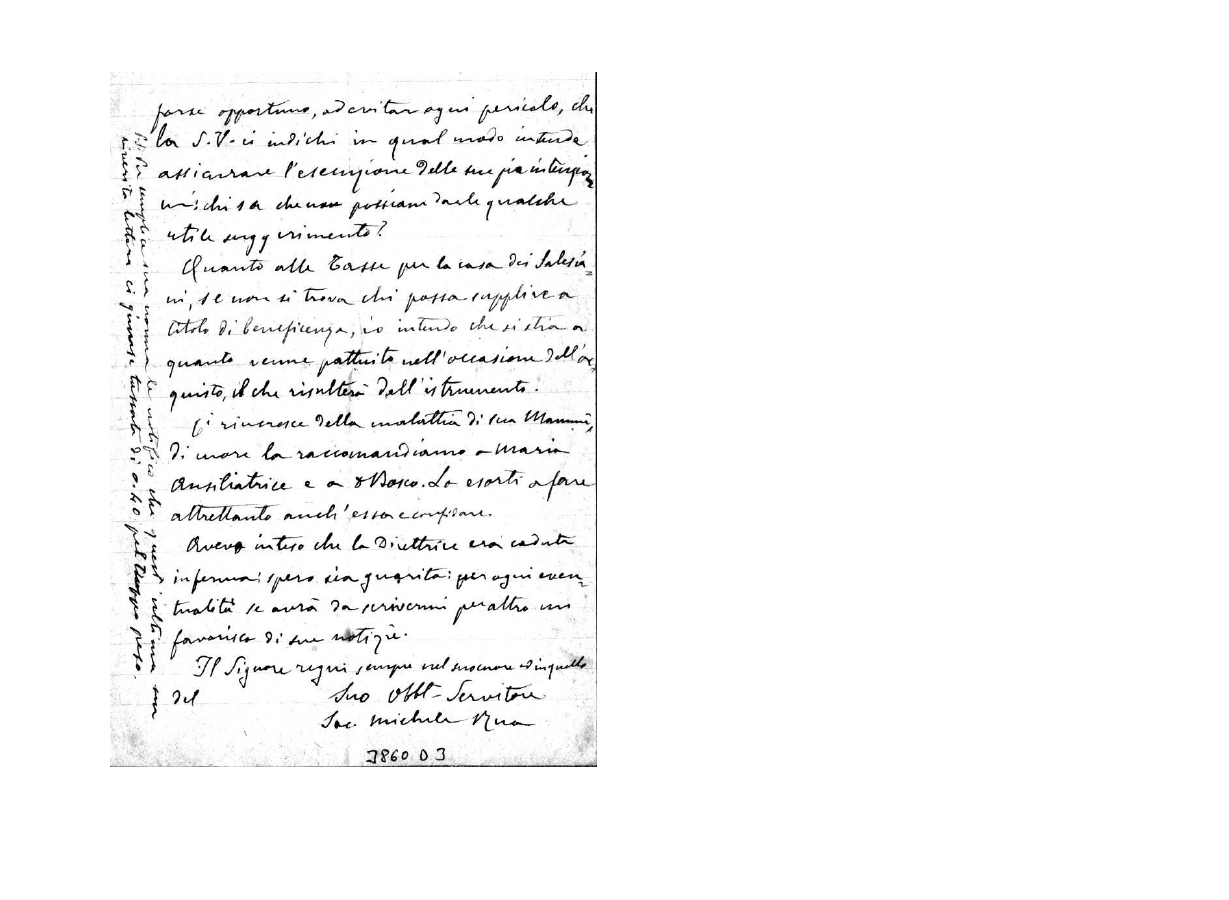 forse opportuno, ad evitar ogni pericolo, che
la S. V. ci indichi in qual modo intende
assicurare l'esecuzione delle sue pie intenzioni
chi sa che non possiamo darle qualche
utile suggerimento?
Quanto alle Tasse per la casa dei Salesia=
ni, se non si trova chi possa supplire a
titolo di beneficenza, io intendo che si stia a
quanto venne pattuito nell'occasione dell'ac=
quisto, il che risulterà dell'istrumento.
Ci rincresce della malattia di sua Mamma,
di cuore la raccomandiamo a Maria
Ausiliatrice e a D Bosco. La esorti a fare
altrettanto anch'essa e confidare.
Avevo inteso che la Direttrice era caduta
inferma: spero sia guarita: per ogni even=
tualità se avrà da scrivermi per altro mi
favorisca di sue notizie.
Il Signore regni sempre nel suo cuore ed in quello
del
Suo Obbl. Servitore
Sac. Michele Rua
3860 D 3
Per semplice sua norma le notifico che quest'ultima sua
riverita lettera ci giunse tassata di 0.40 pel troppo peso.